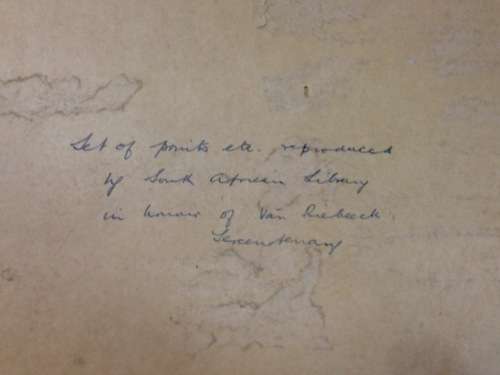 Set of prints etc. reproduced
by South African Library
in honour of Van Riebeeck
Tercentenary